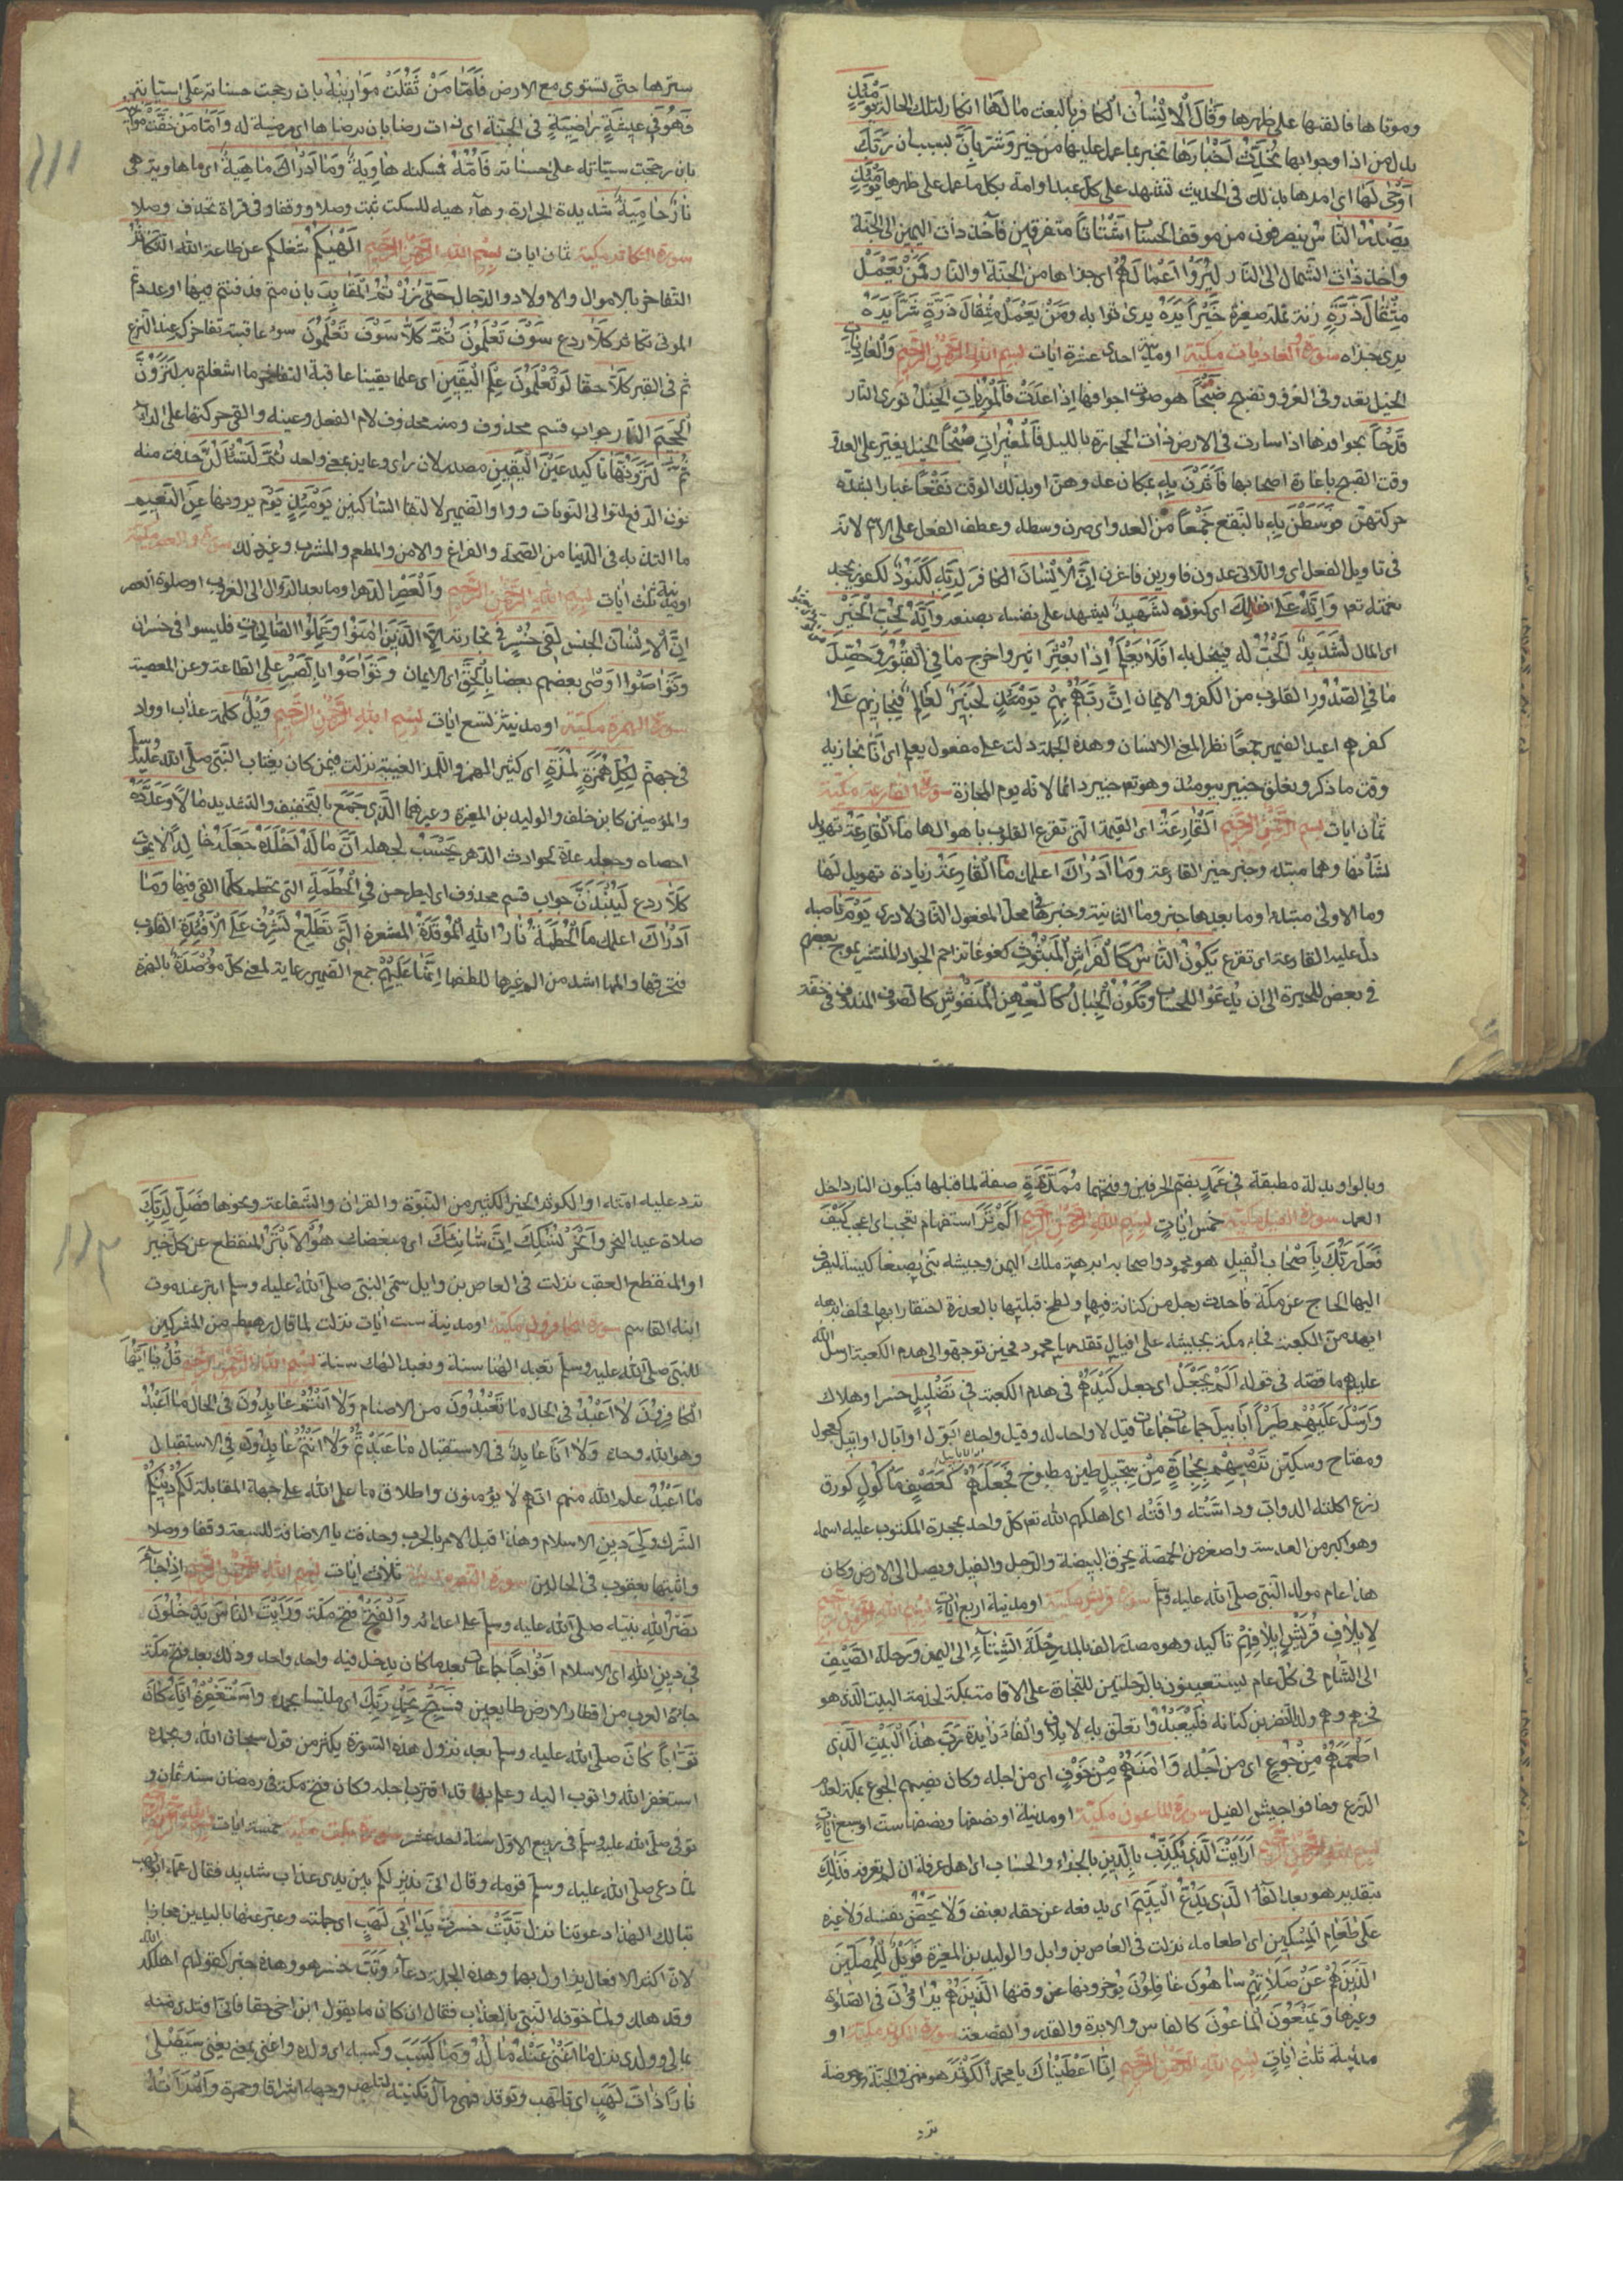 وموتاها فالقتها على ظهرها وَقَالَ الْاِنْسَانُ الكافر بالبعث مَا لَهَا انكارا لتلك الحالة يَوْمَئِذٍ
بدل من اذا وجوابها تُحَدِّثُ اَخْبَارَهَا تخبر بما عمل عليها من خير وشر بِاَنَّ بسبب ان رَبَّكَ
اَوْحٰى لَهَا اى امرها بذلك فى الحديث تشهد على كل عبد او امة بكل ما عمل على ظهرها يَوْمَئِذٍ
يَصْدُرُ النَّاسُ ينصرفون من موقف الحساب اَشْتَاتًا متفرقين فآخذ ذات اليمين الى الجنة
واخذ ذات الشمال الى النار لِيُرَوْا اَعْمَالَهُمْ اى جزاها من الجنة او النار فَمَنْ يَعْمَلْ
مِثْقَالَ ذَرَّةٍ زنة نملة صغيرة خَيْرًا يَرَهُ يرى ثوابه وَمَنْ يَعْمَلْ مِثْقَالَ ذَرَّةٍ شَرًّا يَرَهُ
يرى جزاه سورة العاديات مكية او مدنية احدى عشرة ايات بسم الله الرحمن الرحيم وَالْعَادِيَاتِ
الخيل تعدو فى الغزو وتضبح ضَبْحًا هو صوت اجوافها اذا عدت فَالْمُورِيَاتِ الخيل تورى النار
قَدْحًا بحوافرها اذا سارت فى الارض ذات الحجارة بالليل فَالْمُغِيرَاتِ صُبْحًا الخيل تغير على العدو
وقت الصبح باغارة اصحابها فَاَثَرْنَ بِهِ بمكان عدوهن او بذلك الوقت نَقْعًا غبارا بشدة
حركتهن فَوَسَطْنَ بِهِ بالنقع جَمْعًا من العدو اى صرن وسطه وعطف الفعل على الاسم لانه
فى تاويل الفعل اى واللاتى عدون فاورين فاغرن اِنَّ الْاِنْسَانَ الكافر لِرَبِّهِ لَكَنُودٌ لكفور يجحد
نعمته تعم وَاِنَّهُ عَلٰى ذٰلِكَ اى كنوده لَشَهِيدٌ ليشهد على نفسه بصنعه وَاِنَّهُ لِحُبِّ الْخَيْرِ
اى المال لَشَدِيدٌ لحب له فيبخل به اَفَلَا يَعْلَمُ اِذَا بُعْثِرَ اثير واخرج مَا فِي الْقُبُورِ وَحُصِّلَ
مَا فِي الصُّدُورِ القلوب من الكفر والايمان اِنَّ رَبَّهُمْ بِهِمْ يَوْمَئِذٍ لَخَبِيرٌ لعالم فيجازيهم على
كفرهم اعيد الضمير جمعا نظرا لمعنى الانسان وهذه الجملة دلت على مفعول يعلم اى انا نجازيه
وقت ما ذكر وتعلق خبير بيومئذ وهو تعم خبير دائما لانه يوم المجازة سورة القارعة مكية
ثمان ايات بسم الله الرحمن الرحيم اَلْقَارِعَةُ اى القيمة التى تقرع القلوب باهوالها مَا الْقَارِعَةُ تهويل
لشانها وهما مبتدا وخبر خبر القارعة وَمَا اَدْرَاكَ اعلمك مَا الْقَارِعَةُ زيادة تهويل لها
وما الاولى مبتدا وما بعدها خبر وما الثانية وخبرها فى محل المفعول الثانى لادرى يَوْمَ ناصبه
دل عليه القارعة اى تقرع يَكُونُ النَّاسُ كَالْفَرَاشِ الْمَبْثُوثِ كغوغاء الجراد المنتشر يموج بعضهم
فى بعض للحيرة الى ان يدعوا للحساب وَتَكُونُ الْجِبَالُ كَالْعِهْنِ الْمَنْفُوشِ كالصوف المندوف فى خفة
سيرها حتى تستوى مع الارض فَاَمَّا مَنْ ثَقُلَتْ مَوَازِينُهُ بان رجحت حسناته على سيئاته
فَهُوَ فِي عِيشَةٍ رَاضِيَةٍ فى الجنة اى ذات رضا بان يرضاها اى مرضية له وَاَمَّا مَنْ خَفَّتْ مَوَازِينُهُ
بان رجحت سيئاته على حسناته فَاُمُّهُ فمسكنه هَاوِيَةٌ وَمَا اَدْرَاكَ مَا هِيَهْ اى ما هاوية هى
نَارٌ حَامِيَةٌ شديدة الحرارة وهاء هيه للسكت ثبت وصلا ووقفا وفى قراة تحذف وصلا
سورة التكاثر مكية ثمان ايات بسم الله الرحمن الرحيم اَلْهٰيكُمْ شغلكم عن طاعة الله التَّكَاثُرُ
التفاخر بالاموال والاولاد والرجال حَتّٰى زُرْتُمُ الْمَقَابِرَ بان متم فدفنتم فيها او عددتم
الموتى تكاثرا كَلَّا ردع سَوْفَ تَعْلَمُونَ ثُمَّ كَلَّا سَوْفَ تَعْلَمُونَ سوء عاقبة تفاخركم عند النزع
ثم فى القبر كَلَّا حقا لَوْ تَعْلَمُونَ عِلْمَ الْيَقِينِ اى علما يقينا عاقبة التفاخر ما اشغلتم به لَتَرَوُنَّ
الْجَحِيمَ النار جواب قسم محذوف ومنه محذوف لام الفعل وعينه والقى حركتها على الراء
ثُمَّ لَتَرَوُنَّهَا تاكيد عَيْنَ الْيَقِينِ مصدر لان راى وعاين بمعنى واحد ثُمَّ لَتُسْئَلُنَّ حذفت منه
نون الرفع لتوالى النونات وواو الضمير لالتقاء الساكنين يَوْمَئِذٍ يوم يرونها عَنِ النَّعِيمِ
ما التذ به فى الدنيا من الصحة والفراغ والامن والمطعم والمشرب وغير ذلك سورة والعصر مكية
او مدنية ثلث ايات بسم الله الرحمن الرحيم وَالْعَصْرِ الدهر او ما بعد الزوال الى الغروب او صلوة العصر
اِنَّ الْاِنْسَانَ الجنس لَفِي خُسْرٍ فى تجارته اِلَّا الَّذِينَ اٰمَنُوا وَعَمِلُوا الصَّالِحَاتِ فليسوا فى خسران
وَتَوَاصَوْا اوصى بعضهم بعضا بِالْحَقِّ اى الايمان وَتَوَاصَوْا بِالصَّبْرِ على الطاعة وعن المعصية
سورة الهمزة مكية او مدنية تسع ايات بسم الله الرحمن الرحيم وَيْلٌ كلمة عذاب او واد
فى جهنم لِكُلِّ هُمَزَةٍ لُمَزَةٍ اى كثير الهمز واللمز الغيبة نزلت فيمن كان يغتاب النبى صلى الله عليه وسلم
والمؤمنين كابن خلف والوليد بن المغيرة وغيرهما الَّذِي جَمَعَ بالتخفيف والتشديد مَالًا وَعَدَّدَهُ
احصاه وجعله عدة لحوادث الدهر يَحْسَبُ لجهله اَنَّ مَالَهُ اَخْلَدَهُ جعله خالدا لا يموت
كَلَّا ردع لَيُنْبَذَنَّ جواب قسم محذوف اى ليطرحن فِي الْحُطَمَةِ التى تحطم كلما القى فيها وَمَا
اَدْرَاكَ اعلمك مَا الْحُطَمَةُ نَارُ اللّٰهِ الْمُوقَدَةُ المسعرة الَّتِي تَطَّلِعُ تشرف عَلَى الْاَفْئِدَةِ القلوب
فتحرقها والمها اشد من الم غيرها للطفها اِنَّهَا عَلَيْهِمْ جمع الضمير رعاية لمعنى كل مُؤْصَدَةٌ بالهمزة
وبالواو بدله مطبقة فِي عَمَدٍ بضم الحرفين وفتحهما مُمَدَّدَةٍ صفة لما قبلها فيكون النار داخل
العمد سورة الفيل مكية خمس ايات بسم الله الرحمن الرحيم اَلَمْ تَرَ استفهام تعجب اى اعجب كَيْفَ
فَعَلَ رَبُّكَ بِاَصْحَابِ الْفِيلِ هو محمود واصحابه ابرهة ملك اليمن وجيشه بنى بصنعا كنيسة ليصرف
اليها الحاج عن مكة فاحدث رجل من كنانة فيها ولطخ قبلتها بالعذرة احتقارا بها فحلف ابرهة
ليهدمن الكعبة فجاء مكة بجيشه على افيال مقدمها محمود فحين توجهوا الى هدم الكعبة ارسل الله
عليهم ما قصه فى قوله اَلَمْ يَجْعَلْ اى جعل كَيْدَهُمْ فى هدم الكعبة فِي تَضْلِيلٍ خسار وهلاك
وَاَرْسَلَ عَلَيْهِمْ طَيْرًا اَبَابِيلَ جماعات جماعات قيل لا واحد له وقيل واحده ابول او ابال او ابيل كعجول
ومفتاح وسكين تَرْمِيهِمْ بِحِجَارَةٍ مِنْ سِجِّيلٍ طين مطبوخ فَجَعَلَهُمْ كَعَصْفٍ مَاْكُولٍ كورق
زرع اكلته الدواب وداسته وافنته اى اهلكهم الله تعم كل واحد بحجره المكتوب عليه اسمه
وهو اكبر من العدسة واصغر من الحمصة يخرق البيضة والرجل والفيل ويصل الى الارض وكان
هذا عام مولد النبى صلى الله عليه وسلم سورة قريش مكية او مدنية اربع ايات بسم الله الرحمن الرحيم
لِاِيلَافِ قُرَيْشٍ اِيلَافِهِمْ تاكيد وهو مصدر الف بالمد رِحْلَةَ الشِّتَاءِ الى اليمن وَ رحلة الصَّيْفِ
الى الشام فى كل عام يستعينون بالرحلتين للتجارة على الاقامة بمكة لخدمة البيت الذى هو
فخرهم وهم ولد النضر بن كنانة فَلْيَعْبُدُوا تعلق به لايلاف والفاء زايدة رَبَّ هٰذَا الْبَيْتِ الَّذِي
اَطْعَمَهُمْ مِنْ جُوعٍ اى من اجله وَاٰمَنَهُمْ مِنْ خَوْفٍ اى من اجله وكان يصيبهم الجوع بمكة لعدم
الزرع وخافوا جيش الفيل سورة الماعون مكية او مدنية او نصفها ونصفها ست او سبع ايات
بسم الله الرحمن الرحيم اَرَاَيْتَ الَّذِي يُكَذِّبُ بِالدِّينِ بالجزاء والحساب اى هل عرفته ان لم تعرفه فَذٰلِكَ
بتقدير هو بعد الفاء الَّذِي يَدُعُّ الْيَتِيمَ اى يدفعه عن حقه بعنف وَلَا يَحُضُّ نفسه ولا غيره
عَلٰى طَعَامِ الْمِسْكِينِ اى اطعامه نزلت فى العاص بن وايل والوليد بن المغيرة فَوَيْلٌ لِلْمُصَلِّينَ
الَّذِينَ هُمْ عَنْ صَلَاتِهِمْ سَاهُونَ غافلون يؤخرونها عن وقتها الَّذِينَ هُمْ يُرَاؤُنَ فى الصلوة
وغيرها وَيَمْنَعُونَ الْمَاعُونَ كالفاس والابرة والقدر والقصعة سورة الكوثر مكية او
مدنية ثلث ايات بسم الله الرحمن الرحيم اِنَّا اَعْطَيْنَاكَ يا محمد الْكَوْثَرَ هو نهر فى الجنة هو حوضه
ترد
ترد عليه امته او الكوثر الخير الكثير من النبوة والقران والشفاعة ونحوها فَصَلِّ لِرَبِّكَ
صلاة عيد النحر وَانْحَرْ نسكك اِنَّ شَانِئَكَ اى مبغضك هُوَ الْاَبْتَرُ المنقطع عن كل خير
او المنقطع العقب نزلت فى العاص بن وايل سمى النبى صلى الله عليه وسلم ابتر عند موت
ابنه القاسم سورة الكافرون مكية او مدنية ست ايات نزلت لما قال رهط من المشركين
للنبى صلى الله عليه وسلم تعبد الهنا سنة ونعبد الهك سنة بسم الله الرحمن الرحيم قُلْ يَا اَيُّهَا
الْكَافِرُونَ لَا اَعْبُدُ فى الحال مَا تَعْبُدُونَ من الاصنام وَلَا اَنْتُمْ عَابِدُونَ فى الحال مَا اَعْبُدُ
وهو الله وحده وَلَا اَنَا عَابِدٌ فى الاستقبال مَا عَبَدْتُمْ وَلَا اَنْتُمْ عَابِدُونَ فى الاستقبال
مَا اَعْبُدُ علم الله منهم انهم لا يؤمنون واطلاق ما على الله على جهة المقابلة لَكُمْ دِينُكُمْ
الشرك وَلِيَ دِينِ الاسلام وهذا قبل الامر بالحرب وحذفت يا الاضافة للسبعة وقفا ووصلا
واثبتها يعقوب فى الحالين سورة النصر مدنية ثلاث ايات بسم الله الرحمن الرحيم اِذَا جَاءَ
نَصْرُ اللّٰهِ نبيه صلى الله عليه وسلم على اعدائه وَالْفَتْحُ فتح مكة وَرَاَيْتَ النَّاسَ يَدْخُلُونَ
فِي دِينِ اللّٰهِ اى الاسلام اَفْوَاجًا جماعات بعد ما كان يدخل فيه واحد واحد وذلك بعد فتح مكة
جاءه العرب من اقطار الارض طايعين فَسَبِّحْ بِحَمْدِ رَبِّكَ اى ملتبسا بحمده وَاسْتَغْفِرْهُ اِنَّهُ كَانَ
تَوَّابًا كان صلى الله عليه وسلم بعد نزول هذه السورة يكثر من قول سبحان الله وبحمده
استغفر الله واتوب اليه وعلم بها قد اقترب اجله وكان فتح مكة فى رمضان سنة ثمان و
توفى صلى الله عليه وسلم فى ربيع الاول سنة احد عشر سورة تبت مكية خمسة ايات بسم الله الرحمن الرحيم
لما دعى صلى الله عليه وسلم قومه وقال انى نذير لكم بين يدى عذاب شديد فقال عمه ابو لهب
تبا لك الهذا دعوتنا نزل تَبَّتْ خسرت يَدَا اَبِي لَهَبٍ اى جملته وعبر عنها باليدين مجازا
لان اكثر الافعال يزاول بهما وهذه الجملة دعاء وَتَبَّ خسر هو وهذه خبر كقولهم اهلكه الله
وقد هلك ولما خوفه النبى بالعذاب فقال ان كان ما يقول ابن اخى حقا فانى افتدى منه
بمالى وولدى نزل مَا اَغْنٰى عَنْهُ مَالُهُ وَمَا كَسَبَ وكسبه اى ولده واغنى بمعنى يغنى سَيَصْلٰى
نَارًا ذَاتَ لَهَبٍ اى تلهب وتوقد فهى مآل تكنيته لتلهب وجهه اشراقا وحمرة وَامْرَاَتُهُ